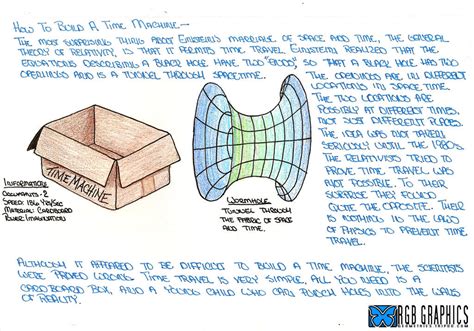 How To Build A Time Machine—
The most surprising thing about Einstein's marriage of space and time, the general
theory of relativity, is that it permits time travel. Einstein realized that the
equations describing a black hole have two "ends", so that a black hole has two
openings and is a tunnel through spacetime.
The openings are in different
locations in space time.
The two locations are
possibly at different times,
not just different places.
The idea was not taken
seriously until the 1980s.
The relativists tried to
prove time travel was
not possible. To their
surprise they found
quite the opposite. Their
is nothing in the laws
of physics to prevent time
travel.
TIME MACHINE
Information:
Occupants: 2
Speed: 186 Yrs/Sec
Material: Cardboard
Power: Imagination
Wormhole:
Tunnel Through
the fabric of space
and time.
Although it appeared to be difficult to build a time machine, the scientists
were proved wrong. Time travel is very simple, all you need is a
cardboard box, and a young child who can punch holes into the walls
of reality.
RGB GRAPHICS
GEOMETRIES.TRIPOD.COM